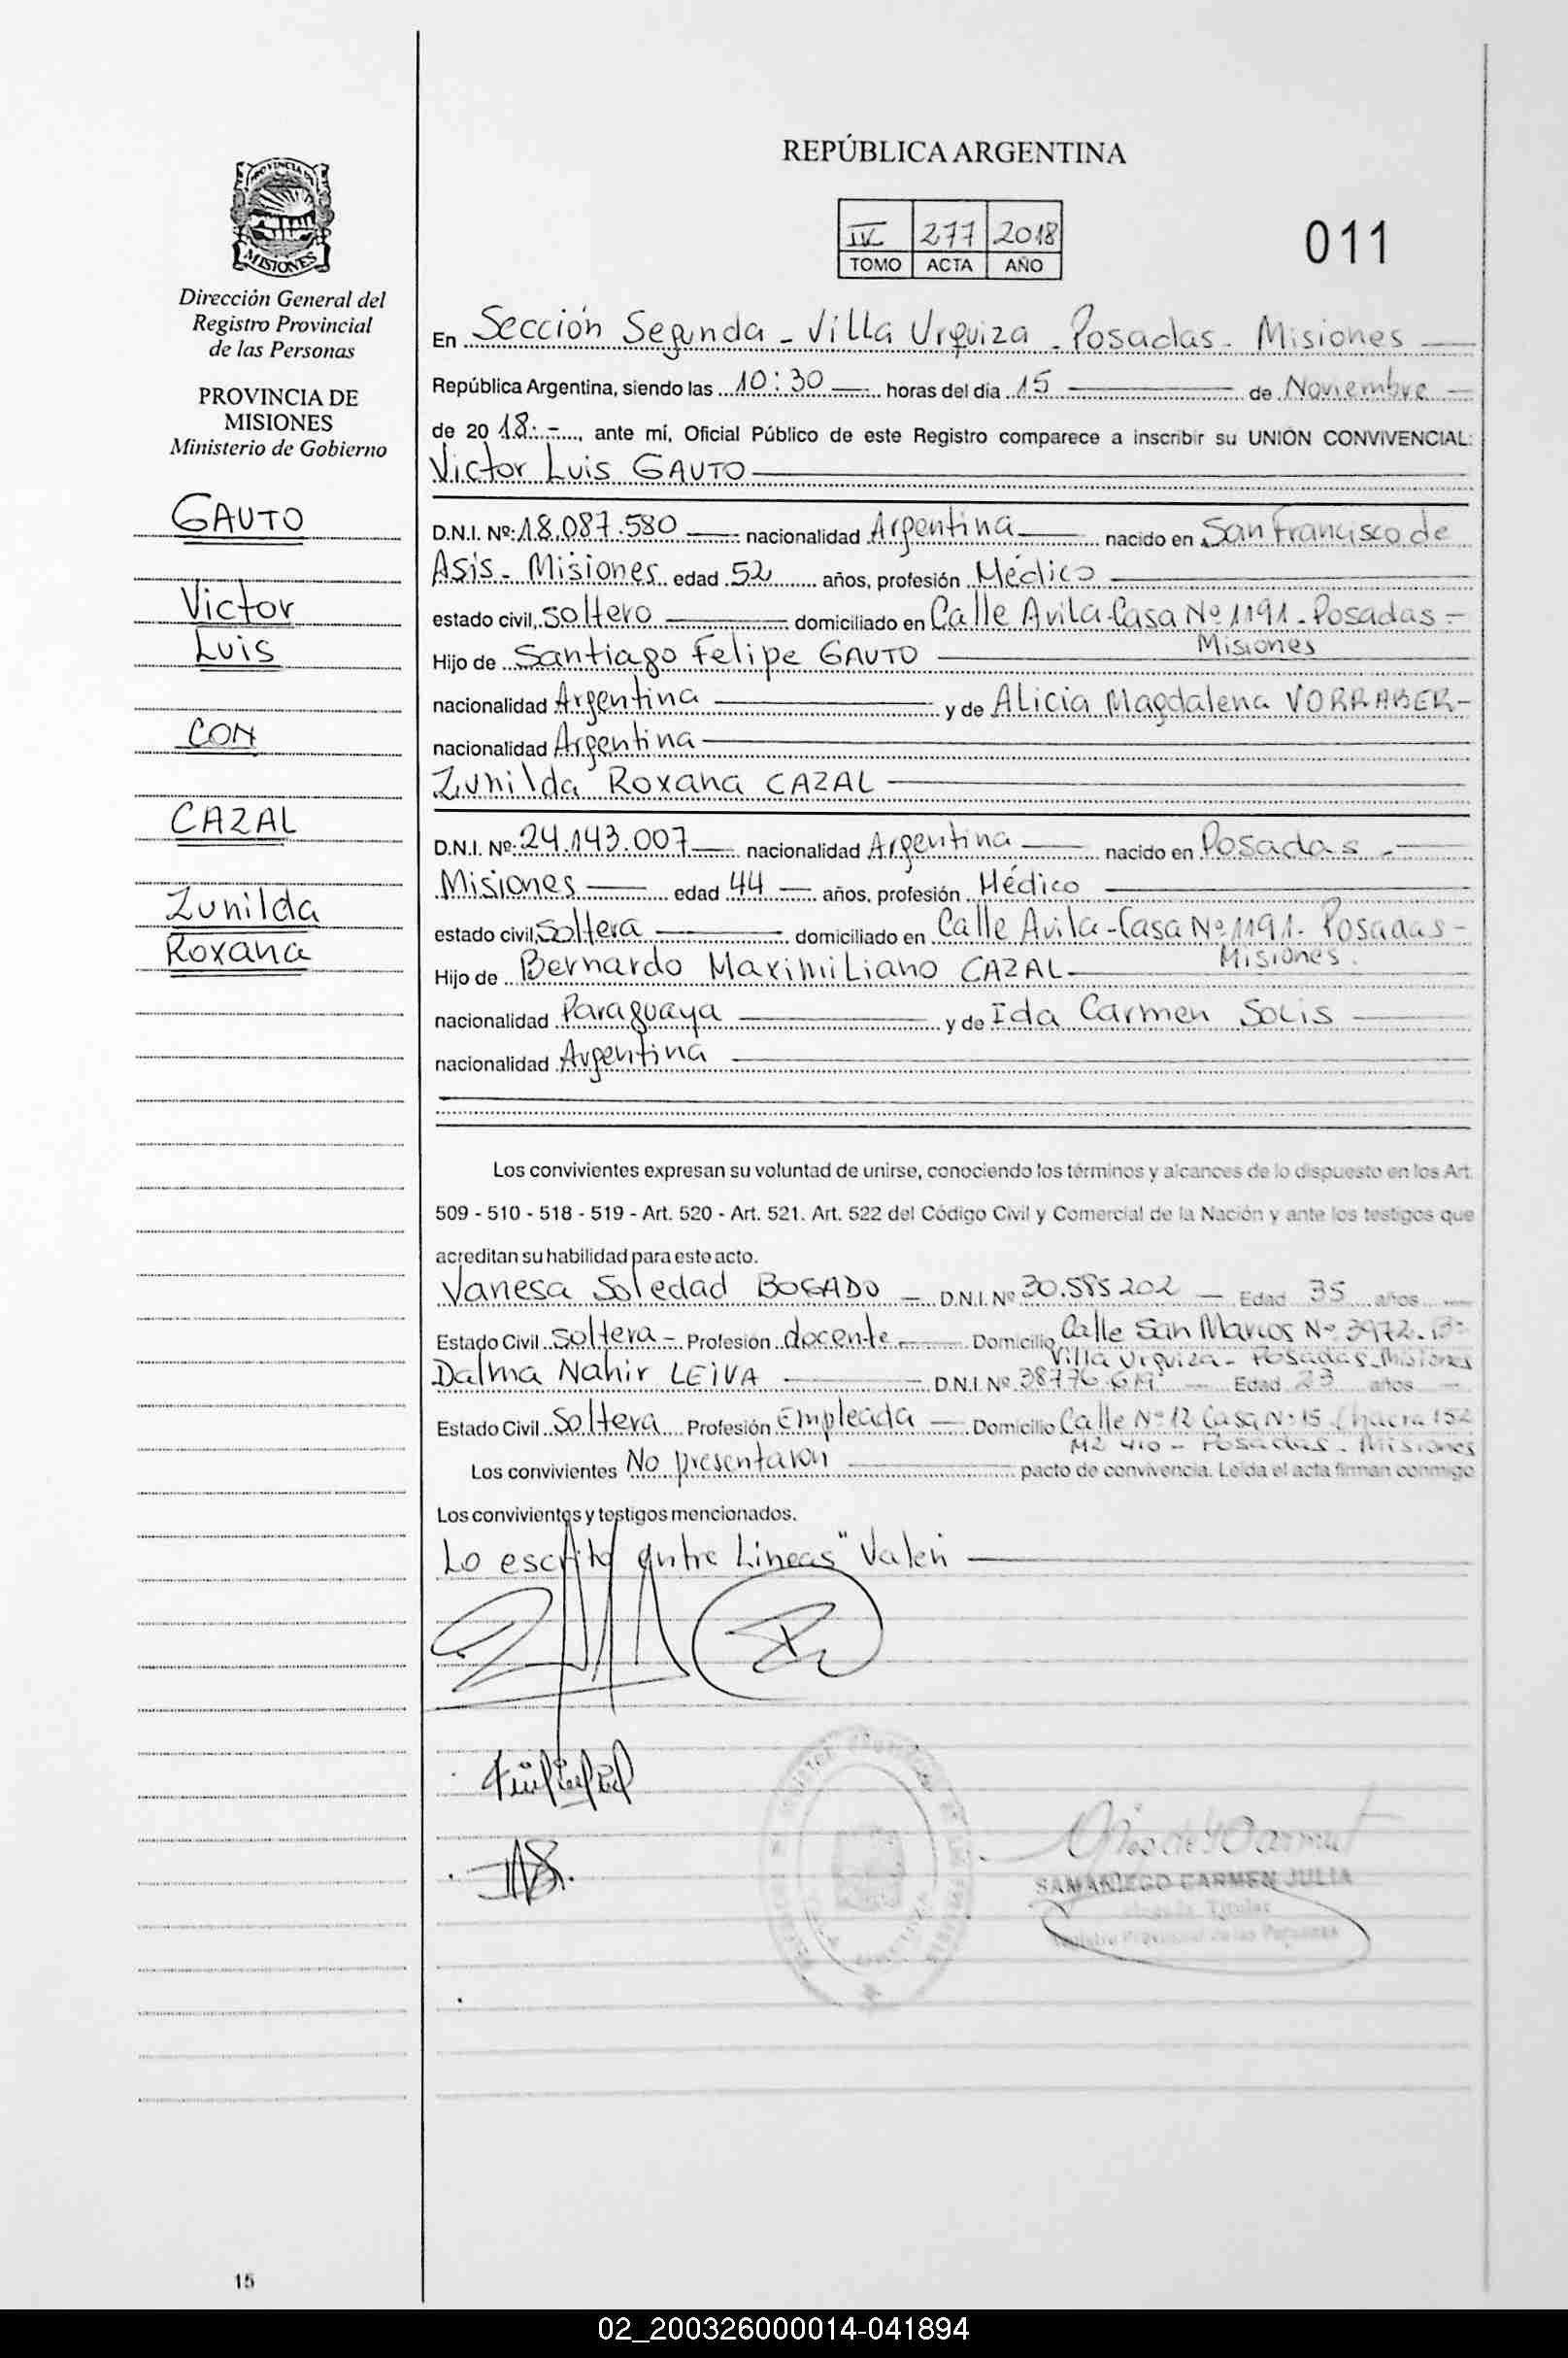 REPÚBLICA ARGENTINA
IV 277 2018
TOMO ACTA AÑO
011
PROVINCIA DE
MISIONES
Dirección General del
Registro Provincial
de las Personas
PROVINCIA DE
MISIONES
Ministerio de Gobierno
GAUTO
Victor
Luis
CON
CAZAL
Zunilda
Roxana
En Sección Segunda - Villa Urquiza - Posadas - Misiones
República Argentina, siendo las 10:30 horas del día 15 de Noviembre
de 20 18.-, ante mí, Oficial Público de este Registro comparece a inscribir su UNIÓN CONVIVENCIAL:
Victor Luis GAUTO
D.N.I. Nº: 18.087.580 nacionalidad Argentina nacido en San Francisco de
Asis - Misiones edad 52 años, profesión Médico
estado civil, soltero domiciliado en Calle Avila - Casa Nº 1191 - Posadas -
Misiones
Hijo de Santiago Felipe GAUTO
nacionalidad Argentina y de Alicia Magdalena VORRABER -
nacionalidad Argentina
Zunilda Roxana CAZAL
D.N.I. Nº: 24.143.007 nacionalidad Argentina nacido en Posadas -
Misiones edad 44 años, profesión Médico
estado civil, Soltera domiciliado en Calle Avila - Casa Nº 1191 - Posadas -
Misiones.
Hijo de Bernardo Maximiliano CAZAL
nacionalidad Paraguaya y de Ida Carmen SOLIS
nacionalidad Argentina
Los convivientes expresan su voluntad de unirse, conociendo los términos y alcances de lo dispuesto en los Art.
509 - 510 - 518 - 519 - Art. 520 - Art. 521. Art. 522 del Código Civil y Comercial de la Nación y ante los testigos que
acreditan su habilidad para este acto.
Vanesa Soledad BOGADO - D.N.I. Nº 30.585202 - Edad 35 años
Estado Civil soltera - Profesión docente Domicilio Calle San Marcos Nº 3972 - Bº
Villa Urquiza - Posadas - Misiones
Dalma Nahir LEIVA D.N.I. Nº 38776.619 - Edad 23 años
Estado Civil Soltera Profesión Empleada - Domicilio Calle Nº 12 Casa Nº 15 Chacra 152
MZ 410 - Posadas - Misiones
Los convivientes No presentaron pacto de convivencia. Leída el acta firman conmigo
Los convivientes y testigos mencionados.
Lo escrito entre Lineas" Valen
SAMANIEGO CARMEN JULIA
Titular
Registro Provincial de las Personas
15
02_200326000014-041894